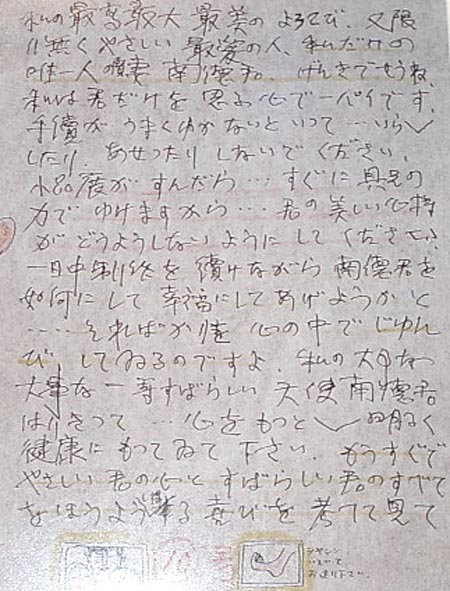 私の最高最大最美のよろこび、又限
り無くやさしい最愛の人、私だけの
唯一人の妻 南徳君。げんきでせうね
私は君だけを思ふ心で一パイです。
手續がうまくゆかないといって…いら〱
したり、あせったりしないでください、
小品展がすんだら…すぐに
力でゆけますから…君の美しい心持
がどうようしないようにしてください、
一日中制作を續けながら南徳君を
如何にして幸福にしてあげようかと
……そればかりを心の中でじゆん
びしてゐるのですよ、私の大事な
大事な一番すばらしい天使南徳君
はりきって…心をもっと〱明るく
健康にもってゐて下さい、もうすぐで
やさしい君の心とすばらしい君のすべて
をほうようする喜びを考へて見て
シヤシン
お送り下さい